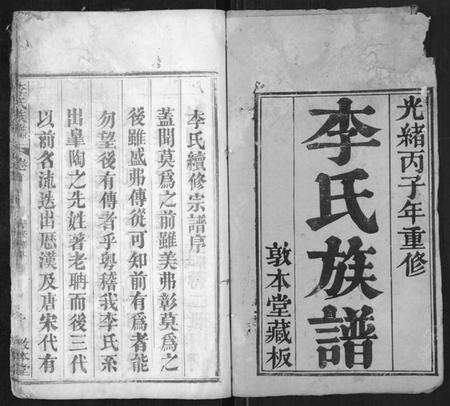 光緒丙子年重修
李氏族譜
敦本堂藏板
李氏續修宗譜序
蓋聞莫爲之前雖美弗彰莫爲之
後雖盛弗傳從可知前有爲者能
勿望後有傳者乎粵稽我李氏系
出皋陶之先姓著老聃而後三代
以前名流迭出歴漢及唐宋代有
李氏族譜
敦本堂